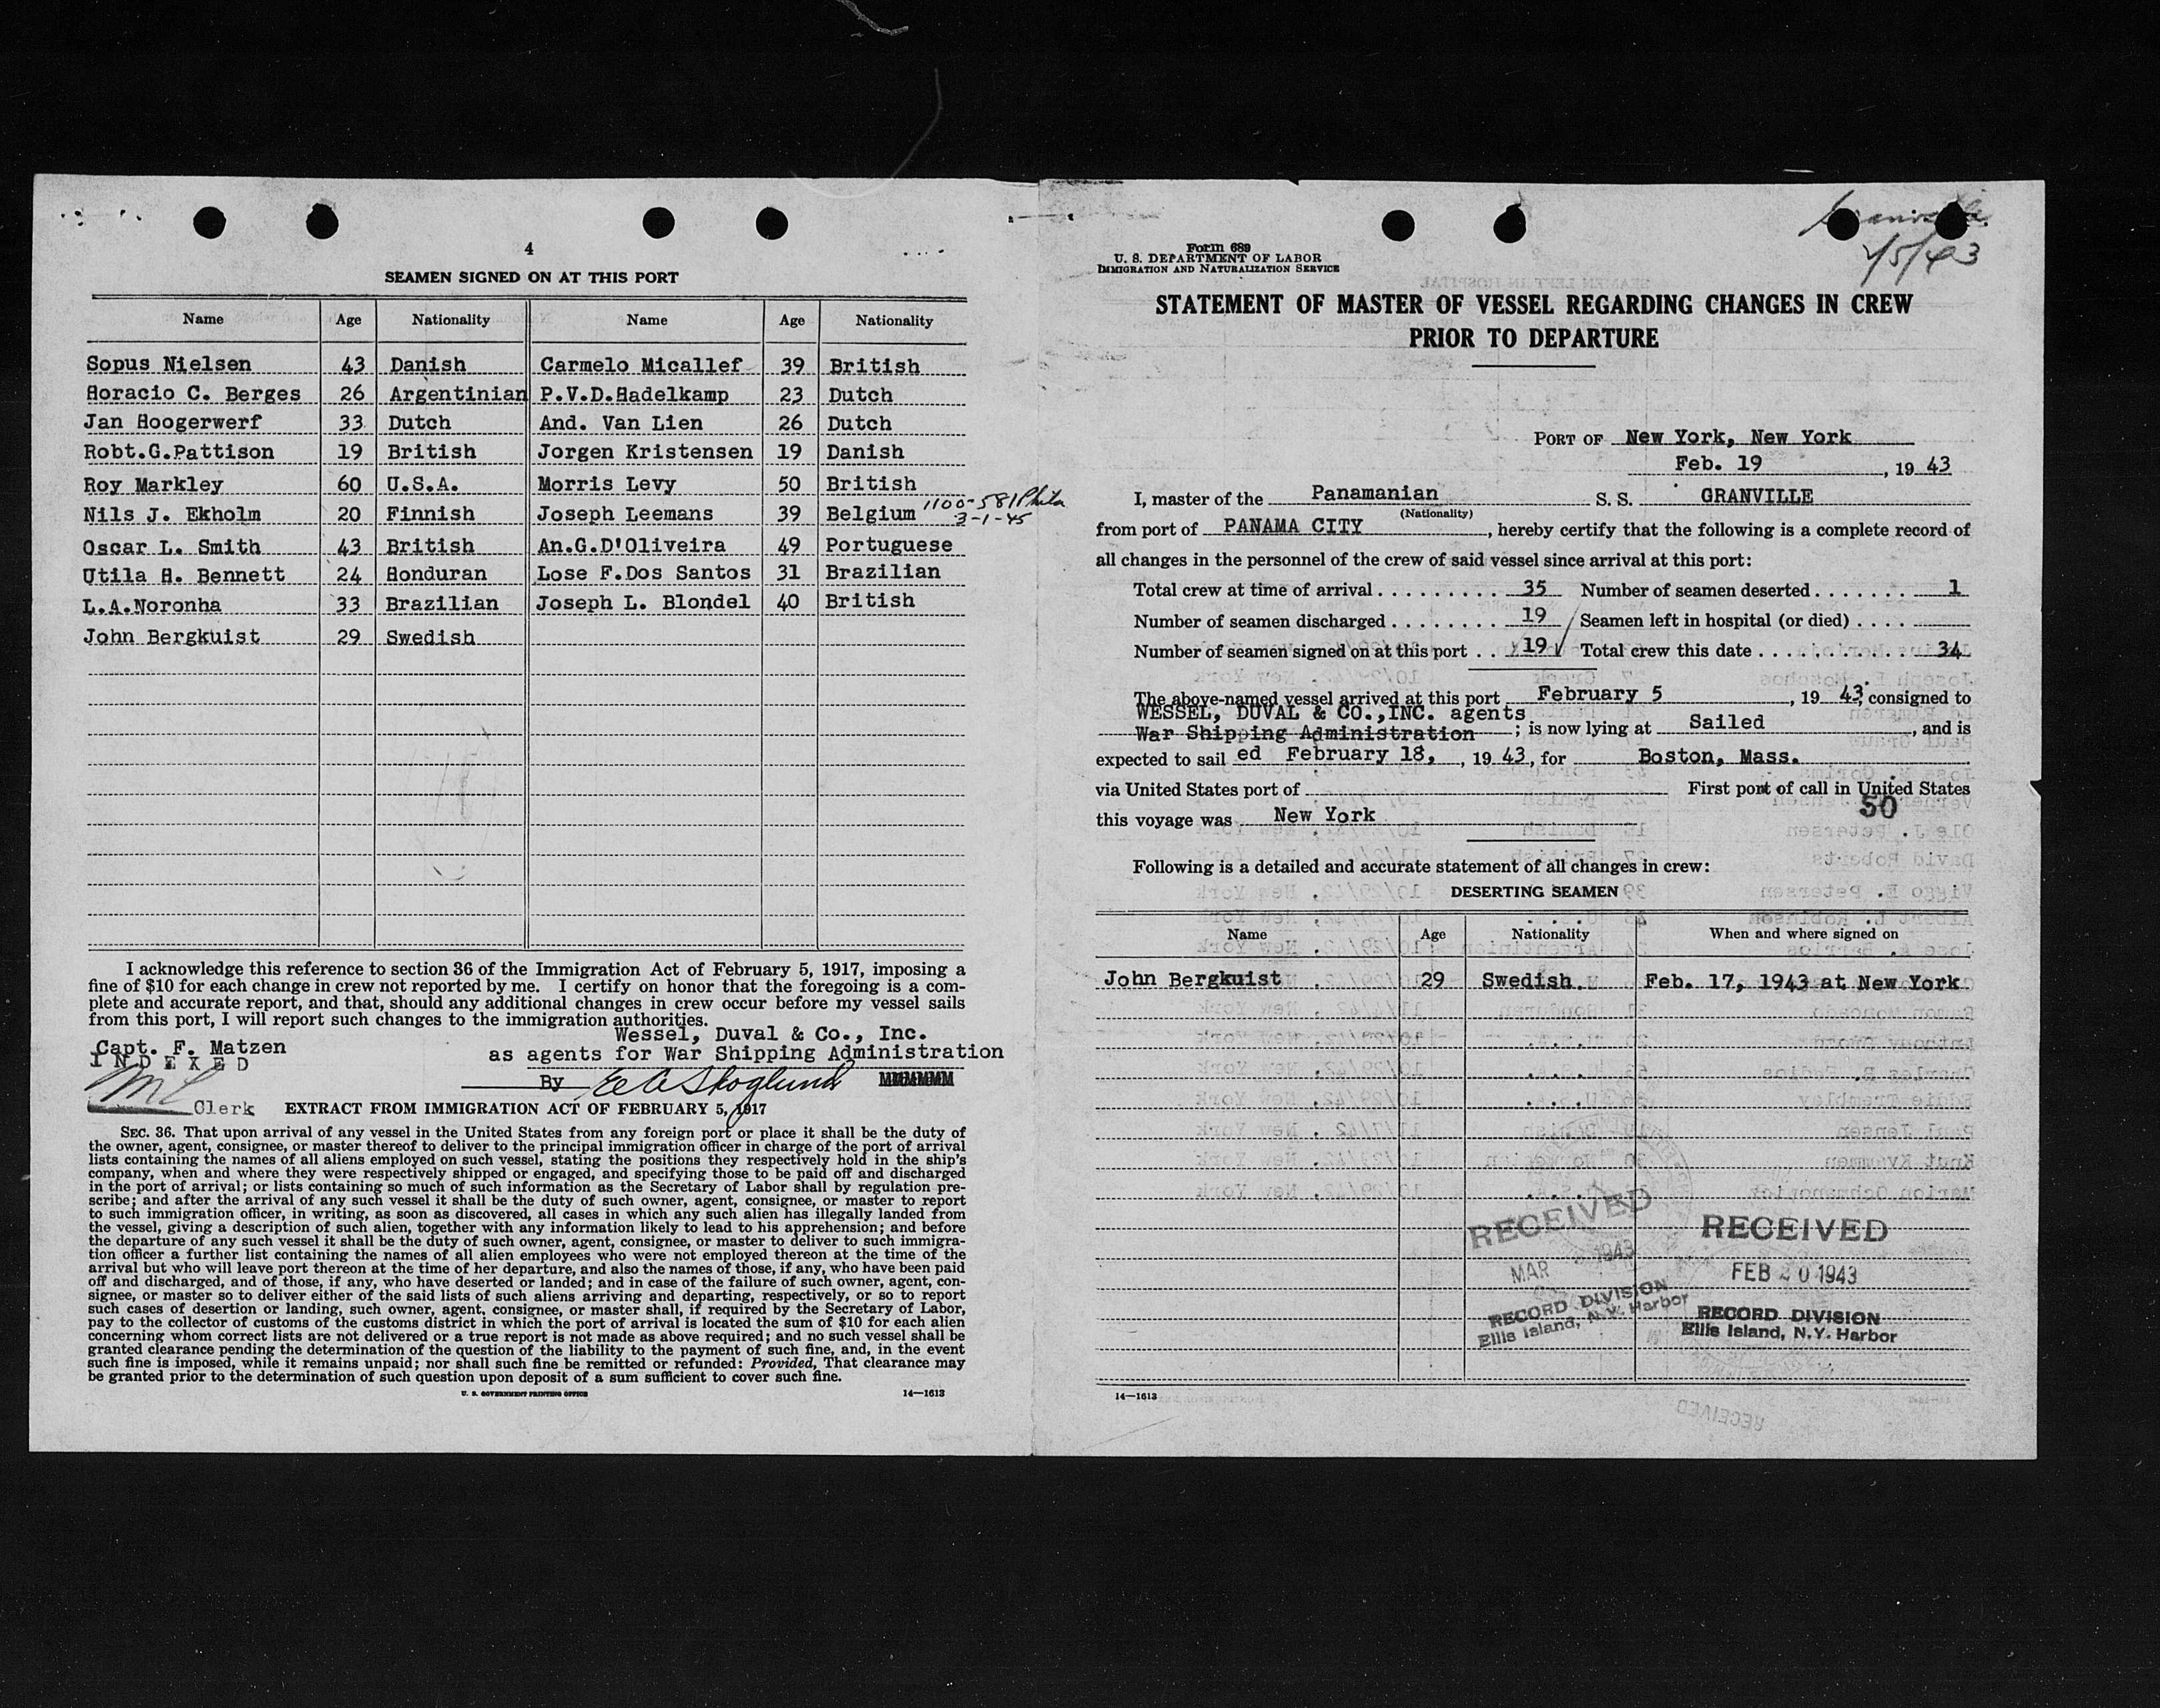 4
SEAMEN SIGNED ON AT THIS PORT
Name Age Nationality Name Age Nationality
Sopus Nielsen 43 Danish Carmelo Micallef 39 British
Horacio C. Berges 26 Argentinian P.V.D.Hadelkamp 23 Dutch
Jan Hoogerwerf 33 Dutch And. Van Lien 26 Dutch
Robt.G.Pattison 19 British Jorgen Kristensen 19 Danish
Roy Markley 60 U.S.A. Morris Levy 50 British
Nils J. Ekholm 20 Finnish Joseph Leemans 39 Belgium 1100-581 Phila
3-1-45
Oscar L. Smith 43 British An.G.D'Oliveira 49 Portuguese
Utila H. Bennett 24 Honduran Lose F.Dos Santos 31 Brazilian
L.A.Noronha 33 Brazilian Joseph L. Blondel 40 British
John Bergkuist 29 Swedish
I acknowledge this reference to section 36 of the Immigration Act of February 5, 1917, imposing a
fine of $10 for each change in crew not reported by me. I certify on honor that the foregoing is a com-
plete and accurate report, and that, should any additional changes in crew occur before my vessel sails
from this port, I will report such changes to the immigration authorities.
Wessel, Duval & Co., Inc.
Capt. F. Matzen as agents for War Shipping Administration
INDEXED
By E A Skoglund
Clerk EXTRACT FROM IMMIGRATION ACT OF FEBRUARY 5, 1917
SEC. 36. That upon arrival of any vessel in the United States from any foreign port or place it shall be the duty of
the owner, agent, consignee, or master thereof to deliver to the principal immigration officer in charge of the port of arrival
lists containing the names of all aliens employed on such vessel, stating the positions they respectively hold in the ship's
company, when and where they were respectively shipped or engaged, and specifying those to be paid off and discharged
in the port of arrival; or lists containing so much of such information as the Secretary of Labor shall by regulation pre-
scribe; and after the arrival of any such vessel it shall be the duty of such owner, agent, consignee, or master to report
to such immigration officer, in writing, as soon as discovered, all cases in which any such alien has illegally landed from
the vessel, giving a description of such alien, together with any information likely to lead to his apprehension; and before
the departure of any such vessel it shall be the duty of such owner, agent, consignee, or master to deliver to such immigra-
tion officer a further list containing the names of all alien employees who were not employed thereon at the time of the
arrival but who will leave port thereon at the time of her departure, and also the names of those, if any, who have been paid
off and discharged, and of those, if any, who have deserted or landed; and in case of the failure of such owner, agent, con-
signee, or master so to deliver either of the said lists of such aliens arriving and departing, respectively, or so to report
such cases of desertion or landing, such owner, agent, consignee, or master shall, if required by the Secretary of Labor,
pay to the collector of customs of the customs district in which the port of arrival is located the sum of $10 for each alien
concerning whom correct lists are not delivered or a true report is not made as above required; and no such vessel shall be
granted clearance pending the determination of the question of the liability to the payment of such fine, and, in the event
such fine is imposed, while it remains unpaid; nor shall such fine be remitted or refunded: Provided, That clearance may
be granted prior to the determination of such question upon deposit of a sum sufficient to cover such fine.
U. S. GOVERNMENT PRINTING OFFICE 14—1613
Form 689
U. S. DEPARTMENT OF LABOR
IMMIGRATION AND NATURALIZATION SERVICE
Granville
2/5/43
STATEMENT OF MASTER OF VESSEL REGARDING CHANGES IN CREW
PRIOR TO DEPARTURE
PORT OF New York, New York
Feb. 19, 19 43
I, master of the Panamanian S. S. GRANVILLE
(Nationality)
from port of PANAMA CITY, hereby certify that the following is a complete record of
all changes in the personnel of the crew of said vessel since arrival at this port:
Total crew at time of arrival . . . . . . . . . 35 Number of seamen deserted . . . . . . . 1
Number of seamen discharged . . . . . . . . 19 Seamen left in hospital (or died) . . . .
Number of seamen signed on at this port . . 19 Total crew this date . . . . . . . . . . . 34
The above-named vessel arrived at this port February 5, 19 43, consigned to
WESSEL, DUVAL & CO.,INC. agents
War Shipping Administration ; is now lying at Sailed, and is
expected to sail ed February 18, , 19 43, for Boston, Mass.
via United States port of First port of call in United States
this voyage was New York 50
Following is a detailed and accurate statement of all changes in crew:
DESERTING SEAMEN
Name Age Nationality When and where signed on
John Bergkuist 29 Swedish. Feb. 17, 1943 at New York
RECEIVED
MAR 1943
RECORD DIVISION
Ellis Island, N.Y. Harbor
RECEIVED
FEB 20 1943
RECORD DIVISION
Ellis Island, N.Y. Harbor
14—1613
RECEIVED